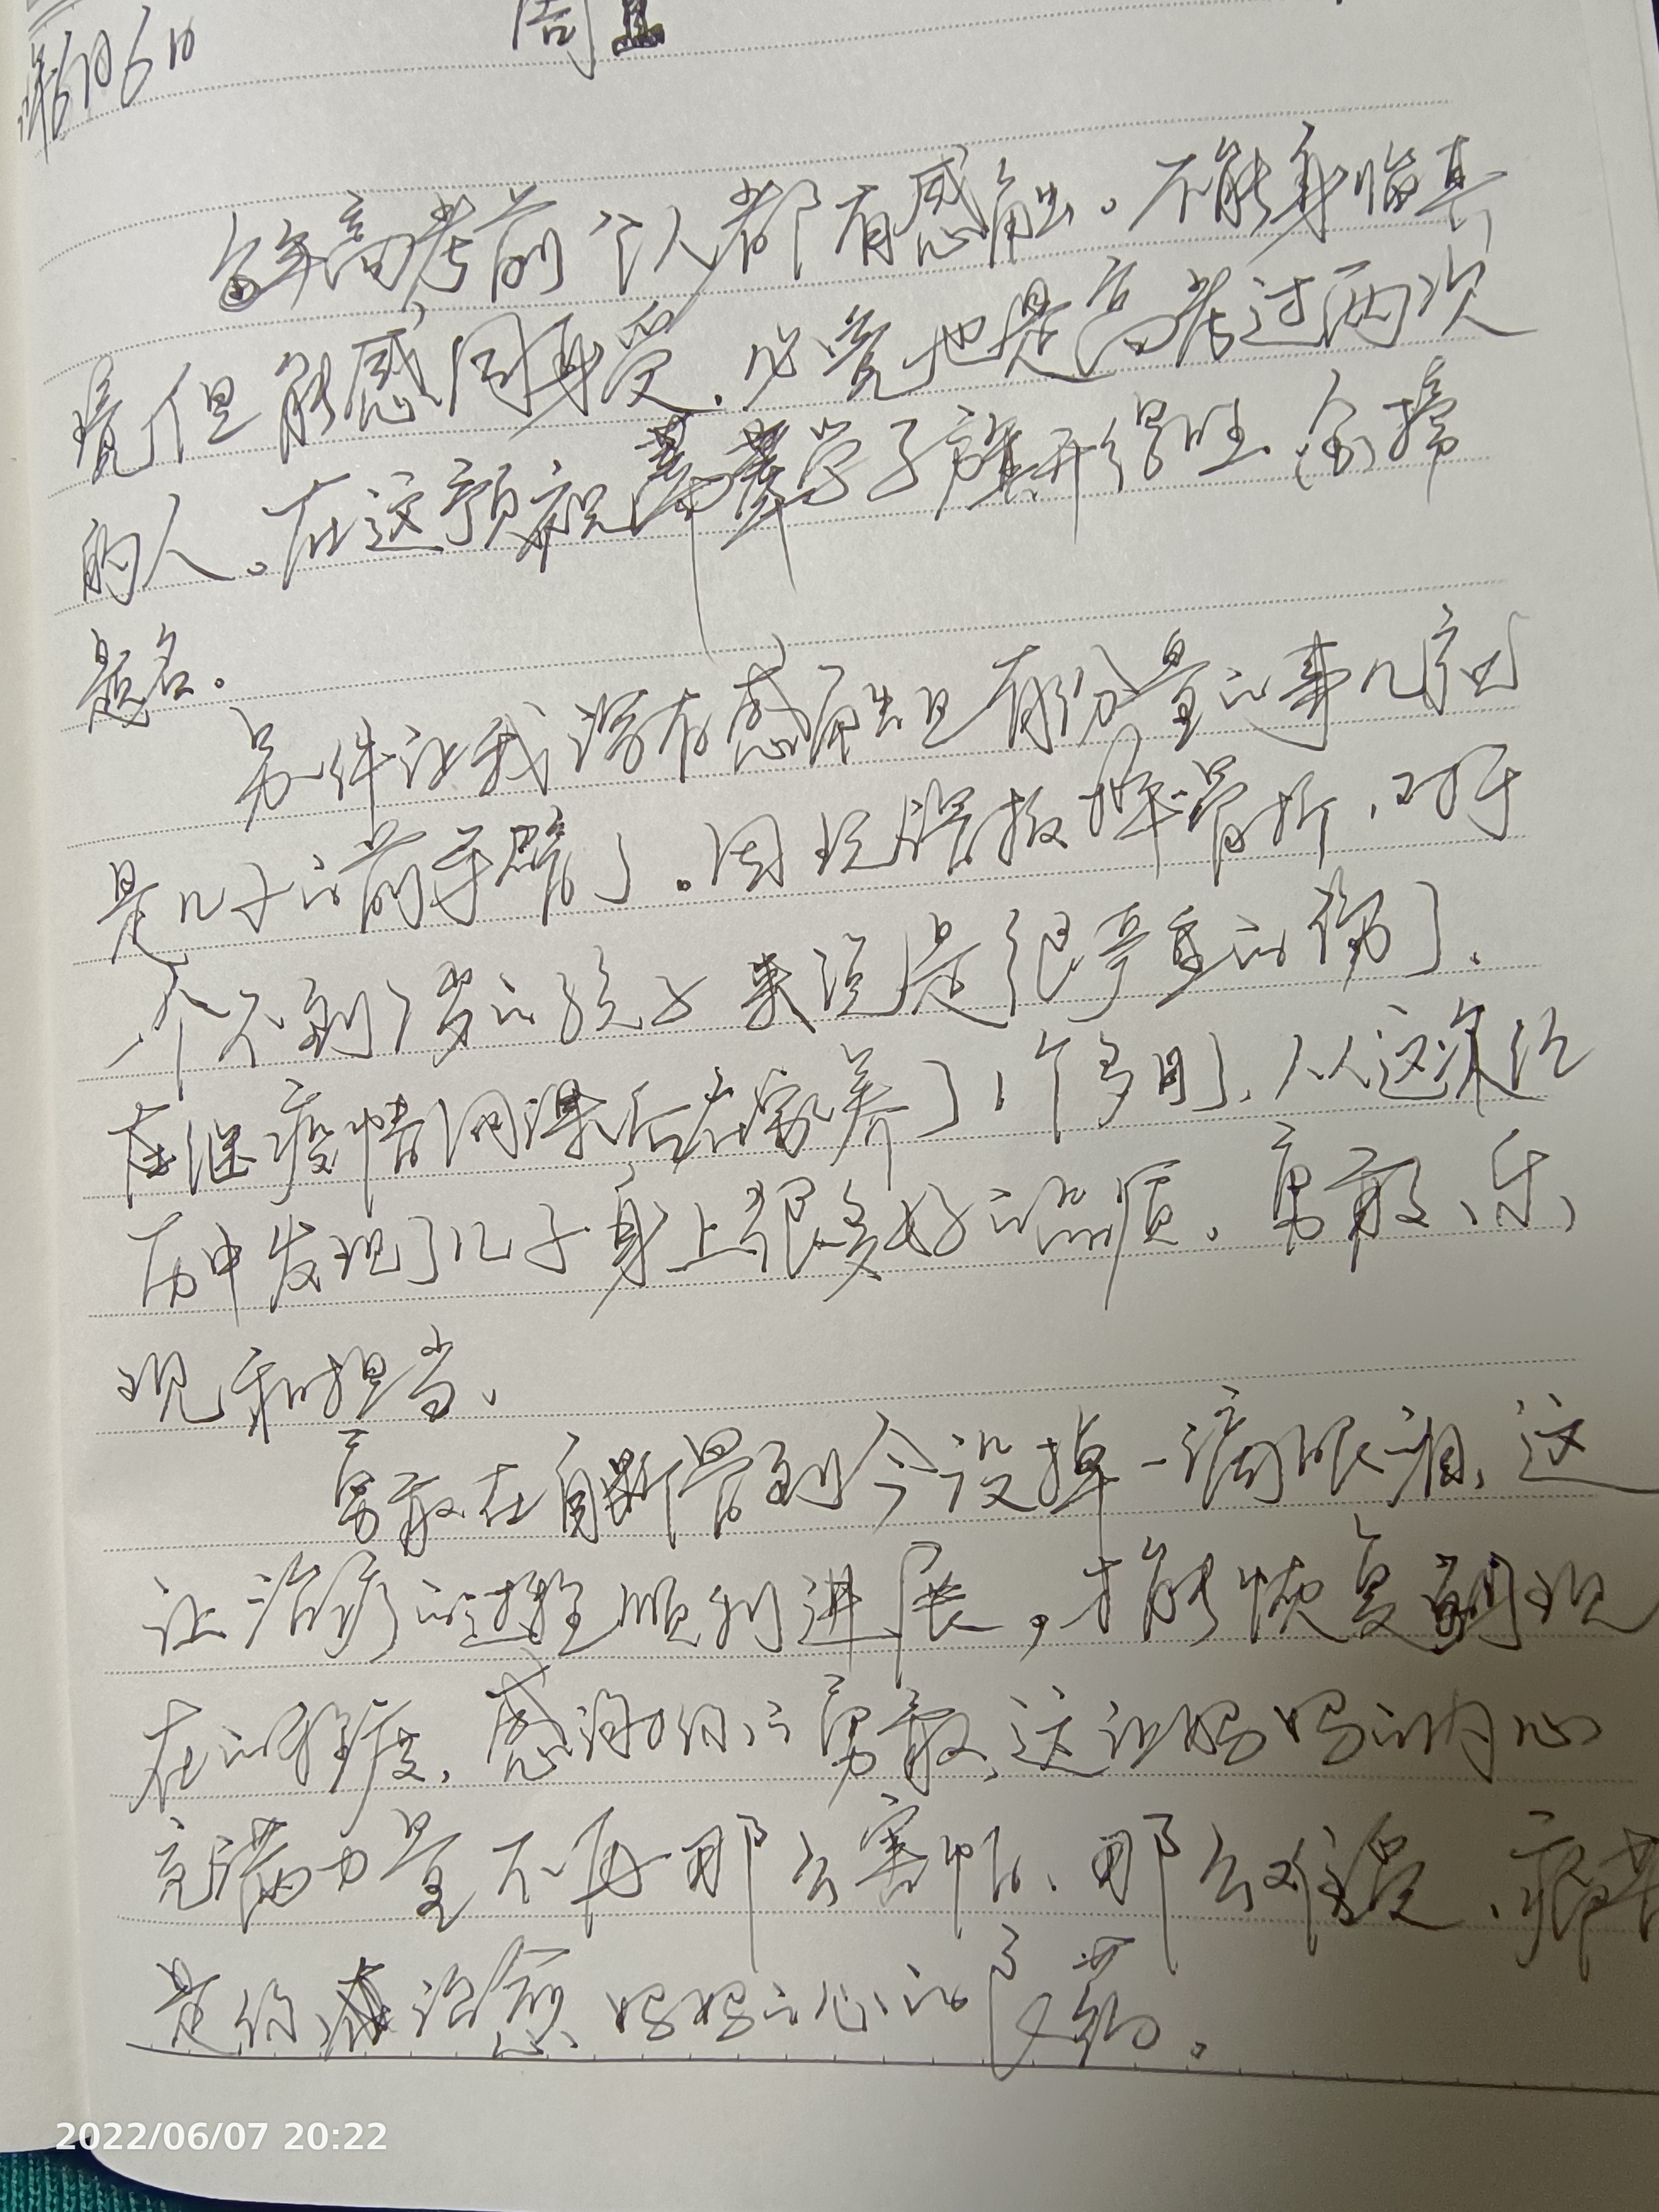 6月6日 周
每年高考前个人都有感触。不能身临其
境但能感同身受.必竟也是高考过两次
的人。在这预祝莘莘学子旗开得胜.金榜
题名。
另件让我深有感触且有份量的事儿
是儿子的前手臂了.因玩滑板摔骨折,对于
一个不到7岁的孩子来说是很严重的伤了.
在继疫情网课后在家养了1个多月了,从这次经
历中发现了儿子身上很多好的品质.勇敢、乐
观和担当.
勇敢在自断骨到今没掉一滴眼泪,这
让治疗的过程顺利进展,才能恢复到现
在的程度.感谢你的勇敢,这让妈妈的内心
充满力量不再那么害怕、那么难受.
是你治愈妈妈的心的良药。
2022/06/07 20:22